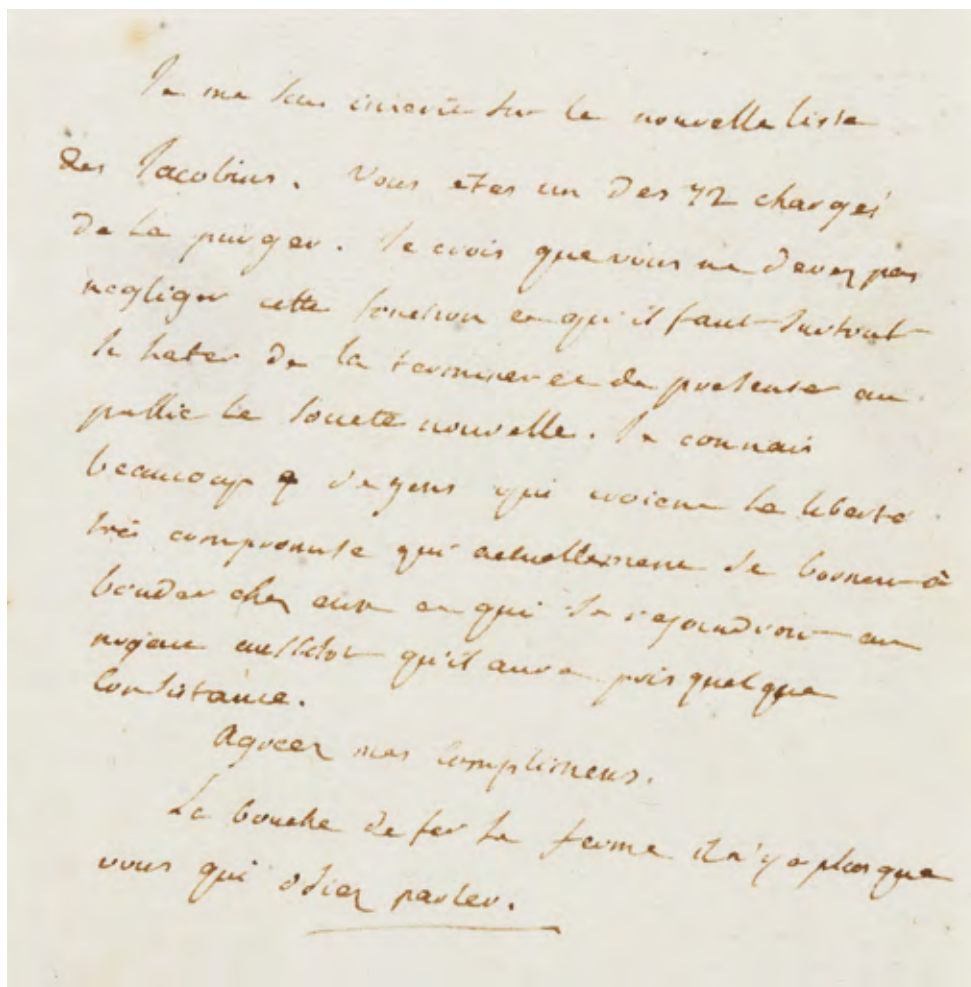 Je me suis inscrit sur la nouvelle liste
des Jacobins. Vous etes un des 72 chargés
de la purger. Je crois que vous ne devez pas
negliger cette fonction et qu'il faut surtout
se hater de la terminer et de presenter au
public la societé nouvelle. Je connais
beaucoup de gens qui croient la liberté
très compromise qui actuellement se bornent à
bouder chez eux et qui se rejoindront au
aussitot qu'il aura pris quelque
consistance.
Agreez mes complimens.
La bouche de fer se ferme il n'y a plus que
vous qui osiez parler.